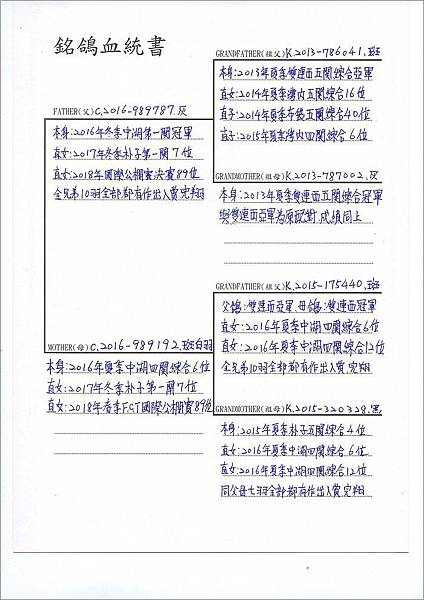 銘鴿血統書
FATHER(父)C.2016-989787.灰
本身:2016年冬季中湖第一關冠軍
直女:2017年冬季朴子第一關7位
直女:2018年國際公棚賽決賽89位
全兄弟10羽全部都有作出入賞完翔
MOTHER(母)C.2016-989192.斑白羽
本身:2016年夏季中湖四關綜合6位
直女:2017年冬季朴子第一關7位
直女:2018年春季FCT國際公棚賽89位
GRANDFATHER(祖父)K.2013-786041.斑
本身:2013年夏季雙連西五關綜合亞軍
直女:2014年夏季灣內五關綜合16位
直子:2014年夏季布袋五關綜合40位
直子:2015年夏季灣內四關綜合6位
GRANDMOTHER(祖母)K.2013-787002.灰
本身:2013年夏季雙連西五關綜合冠軍
與雙連西亞軍為原配對.成績同上
GRANDFATHER(祖父)K.2015-175440.斑
父鴿:雙連西亞軍.母鴿:雙連西冠軍
直女:2016年夏季中湖四關綜合6位
直女:2016年夏季中湖四關綜合12位
全兄弟10羽全部都有作出入賞.完翔
GRANDMOTHER(祖母)K.2015-320329.黑
本身:2015年夏季朴子五關綜合4位
直女:2016年夏季中湖四關綜合6位
直女:2016年夏季中湖四關綜合12位
同父母七羽全部都有作出入賞完翔